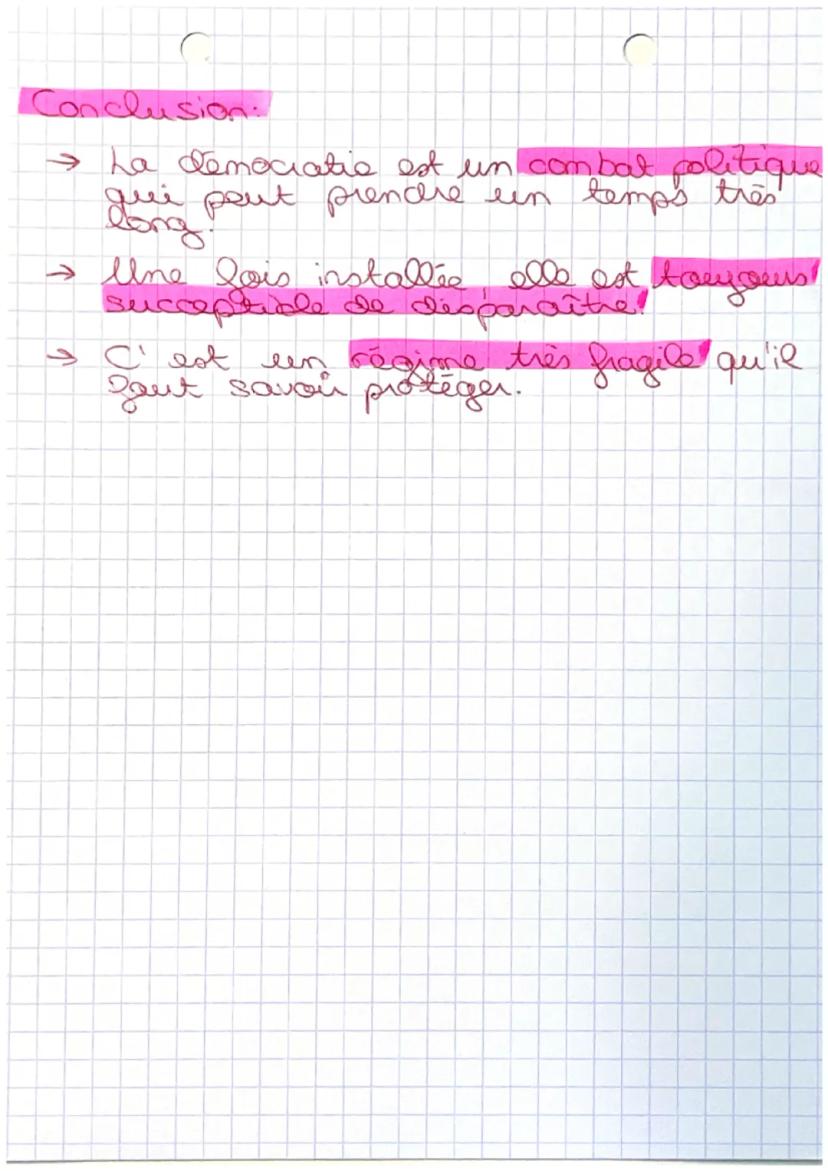 Conclusion:
→ La démocratie est un combat politique
qui peut prendre un temps très
long.
→ Une fois installée elle est toujours
succeptible de disparaître.
→ C'est un régime très fragile qu'il
faut savoir protéger.